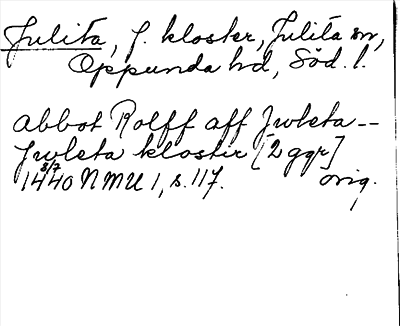 Julita, f. kloster, Julita sn,
Oppunda hd, Söd. l.
abbot Rolff aff Jwleta --
Jwleta kloster [2 ggr]
1440 8/7 NMU 1, s. 117. orig.